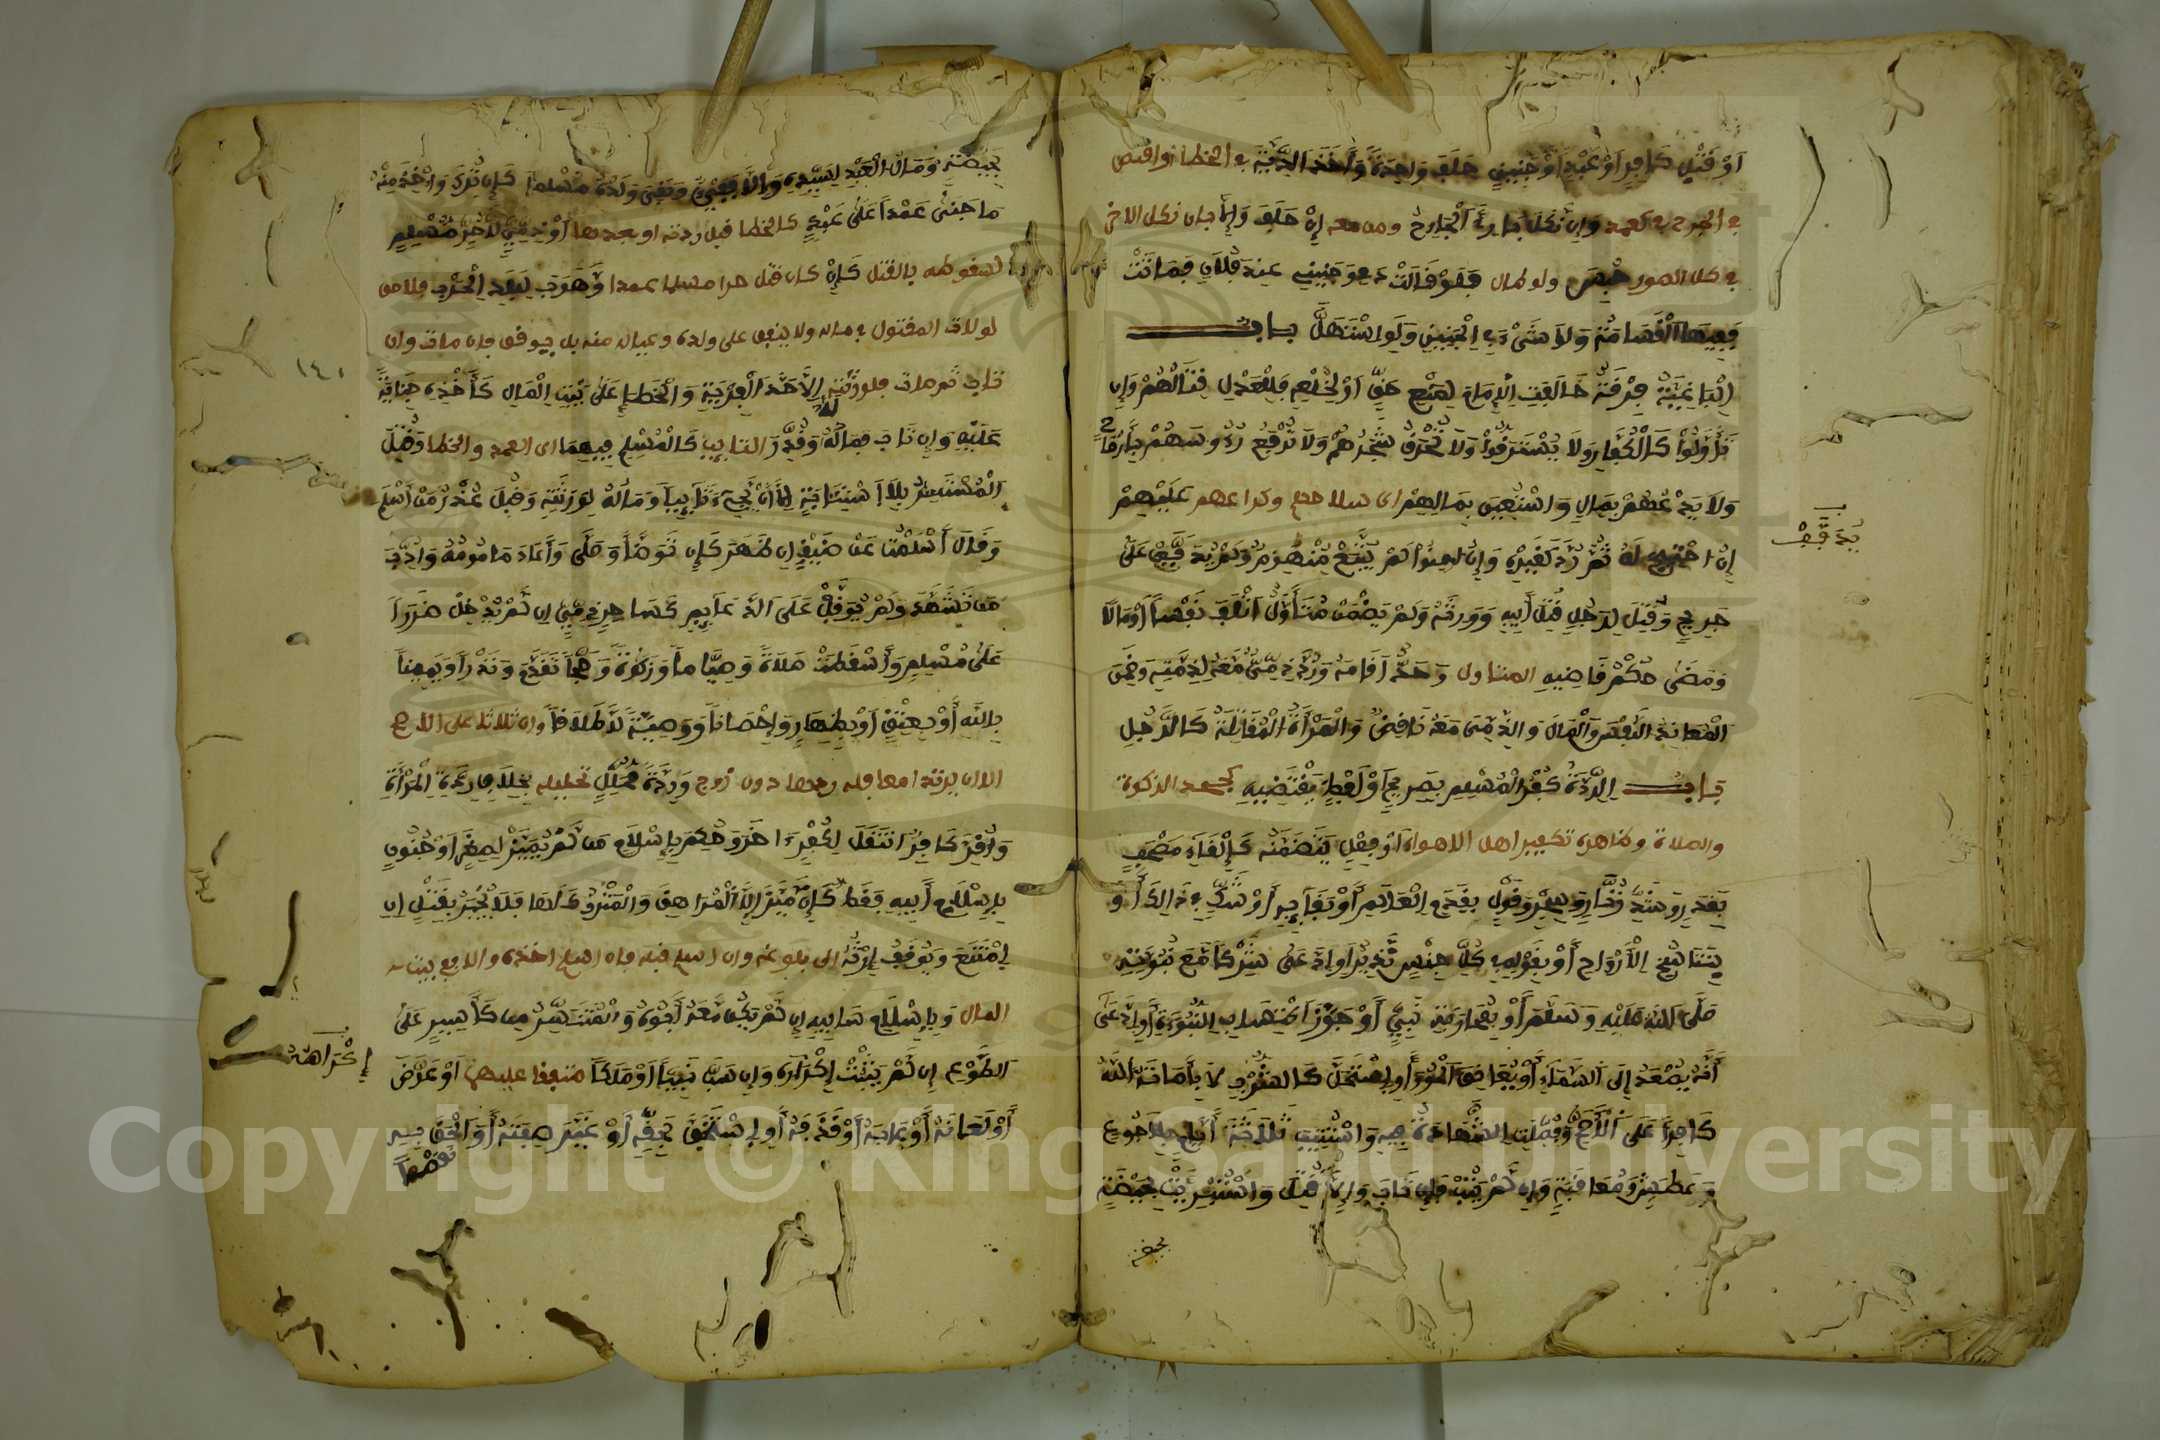 أو قتل كافر أو عبد أو جنين حلف واحدة وأخذ الدية في الخطا او اقتص
في الجرح في العمد وإن نكل برئ الجارح ومن معه إن حلف وإلا جان نكل الاخر
في كل الصور حبس ولو طال فلو قالت دمي وجنيني عند فلان فماتت
ففيها القسامة ولا شيء في الجنين ولو استهل باب
الباغية فرقة خالفت الإمام لمنع حق أو لخلعه فللعدل قتالهم وإن
تأولوا كالكفار ولا يسترقوا ولا تحرق شجرهم ولا ترفع رءوسهم بأرماح
ولا يدعهم بمال واستعين بمالهم اى سلاحهم وكراعهم عليهم
إن احتيج له ثم رد كغيره وإن امنوا لم يتبع منهزمهم ولم يدفف على
يدفف
جريحهم وقتل لرجل قتل أبيه وورثه ولم يضمن متأول أتلف نفسا أو مالا
ومضى حكم قاضيه المتاول وحد أقامه ورد ذمي معه لذمته وضمن
المعاند النفس والمال والذمي معه ناقض والمرأة المقاتلة كالرجل
باب الردة كفر المسلم بصريح أو لفظ يقتضيه كجحد الزكوة
والصلاة وظاهره تكفير اهل الاهواء أو فعل يتضمنه كإلقاء مصحف
بقذر وشد زنار وسحر وقول بقدم العالم أو بقائه أو شك في ذلك أو
بتناسخ الأرواح أو بقوله في كل جنس نذير أو ادعى شركا مع نبوته
صلى الله عليه وسلم أو بمحاربة نبي أو جوز اكتساب النبوة أو ادعى
أنه يصعد إلى السماء أو يعانق الحور أو استحل كالشرب لا بأماته الله
كافرا على الأصح وفصلت الشهادة فيه واستتيب ثلاثة أيام بلا جوع
وعطش ومعاقبة وإن لم يتب فإن تاب وإلا قتل واستبرئت بحيضة
بحيضة
بحيضة ومال العبد لسيده وإلا ففيئ وبقي ولده مسلما كإن ترك وأخذ منه
ما جنى عمدا على عبد كالخطا قبل ردته او بعدها أو ذمي لا حر مسلم
لسقوطه بالقتل كإن كان قتل حرا مسلما عمدا وهرب لبلد الحرب فلا حق
لولات المقتول في ماله ولا ينفق على ولده وعياله منه بل يوقف فان مات وان
تاب ثم مات فلورثته إلا حد الفرية والخطأ على بيت المال كأخذه جناية
عليه وإن تاب فماله له وقدر التايب كالمسلم فيهما اى العمد والخطا وقتل
المستسر بلا استتابة إلا أن يجيء تايبا وماله لورثته وقبل عذر من أسلم
وقال أسلمت عن ضيق إن ظهر كإن توضأ وصلى وأعاد مامومه وأدب
من تشهد ولم يوقف على الدعائم كساحر ذمي إن لم يدخل ضررا
على مسلم وأسقطت صلاة وصياما وزكوة وحجا تقدم ونذرا ويمينا
بالله أو بعتق أو بظهار وإحصانا ووصية لا طلاقا وان ثلاثا على الارجح
الا ان يرتدا معا فله رجعها دون زوج وردة محلل تحليله بخلاف ردة المرأة
وأقر كافر انتقل لكفر اخر وحكم بإسلام من لم يميز لصغر أو جنون
بإسلام أبيه فقط كإن ميز إلا المراهق والمتروك لها فلا يجبر بقتل إن
امتنع ويوقف إرثه الى بلوغه وان اسلم قبله
المال وبإسلام سابيه إن لم يكن معه أبوه والمتنصر من كأسير على
الطوع إن لم يثبت إكراه وإن سب نبيا أو ملكا متفقا عليهن أو عرض
إكراهه
أو لعنه أو عابه أو قذفه أو استخف بحقه أو غير صفته أو ألحق به
نقصا
١٤١